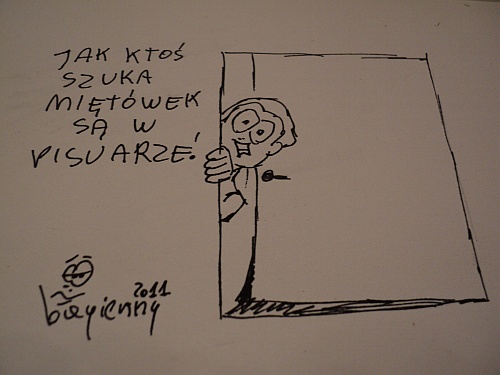 JAK KTOŚ
SZUKA
MIĘTÓWEK
SĄ W
PISUARZE!
2011
biegienny